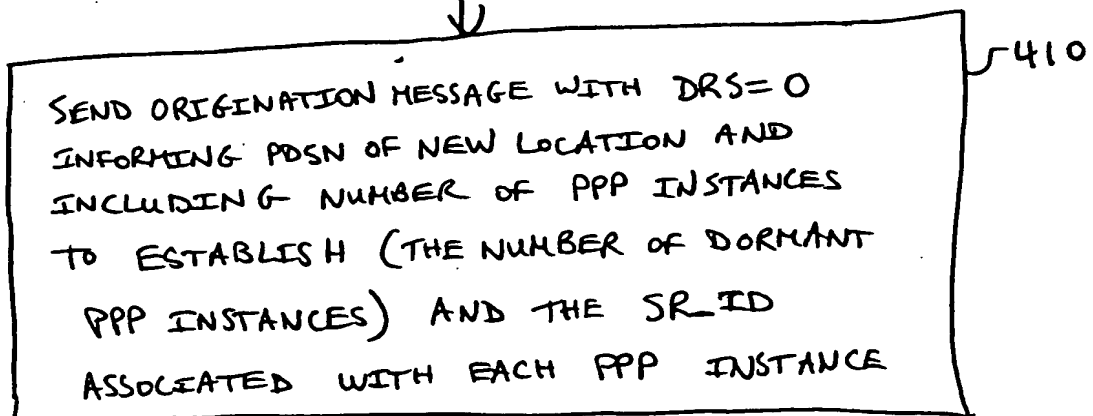 410
SEND ORIGINATION MESSAGE WITH DRS=0
INFORMING PDSN OF NEW LOCATION AND
INCLUDING NUMBER OF PPP INSTANCES
TO ESTABLISH (THE NUMBER OF DORMANT
PPP INSTANCES) AND THE SR_ID
ASSOCIATED WITH EACH PPP INSTANCE